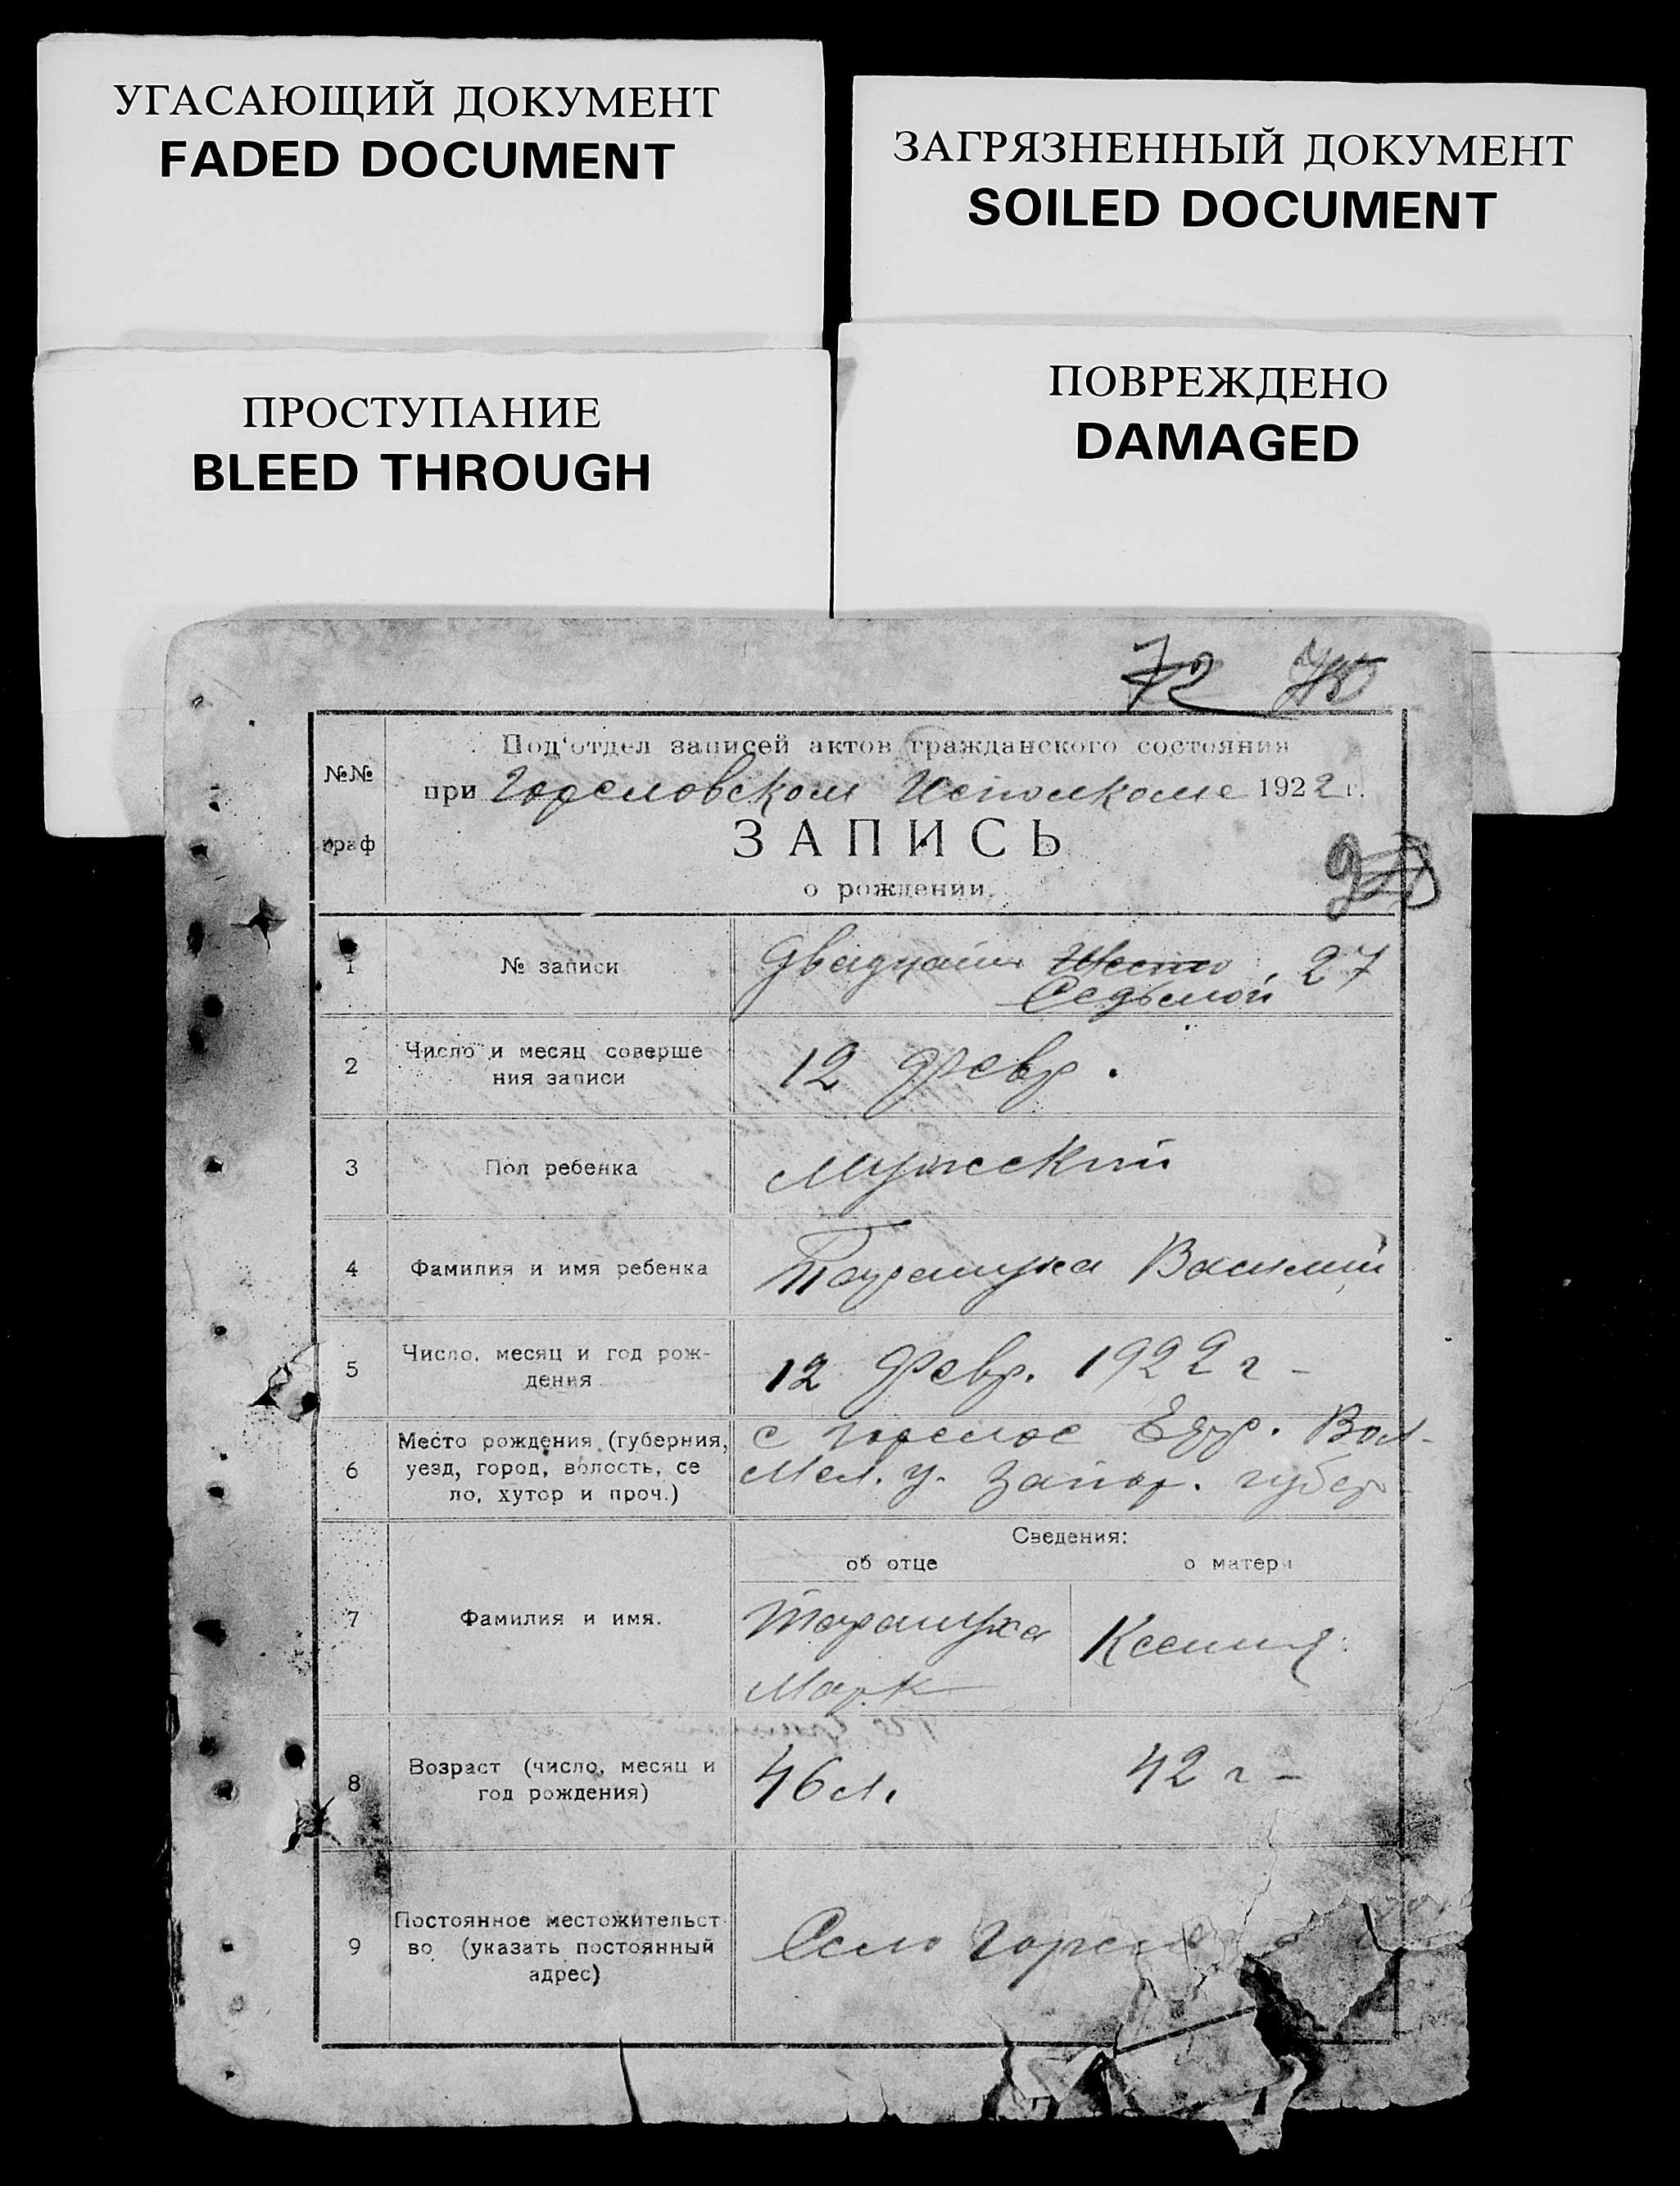 УГАСАЮЩИЙ ДОКУМЕНТ
FADED DOCUMENT
ЗАГРЯЗНЕННЫЙ ДОКУМЕНТ
SOILED DOCUMENT
ПРОСТУПАНИЕ
BLEED THROUGH
ПОВРЕЖДЕНО
DAMAGED
72
№№
граф
Под‘отдел записей актов гражданского состояния
при Гореловском Исполкоме 1922 г.
ЗАПИСЬ
о рождении.
1 № записи Двадцать Шесто 27
Седьмой
2 Число и месяц соверше
ния записи
12 февр.
3 Пол ребенка Мужеский
4 Фамилия и имя ребенка Тарануха Василий
5 Число, месяц и год рож-
дения
12 февр. 1922 г –
6 Место рождения (губерния,
уезд, город, волость, се
ло, хутор и проч.)
с Горелое Вол-
Мел. у. Запор. губер
Сведения:
об отце о матери
7 Фамилия и имя.
Тарануха
Марк
Ксения
8 Возраст (число, месяц и
год рождения)
46 л. 42 г –
9 Постоянное местожительст
во (указать постоянный
адрес)
Село Горело